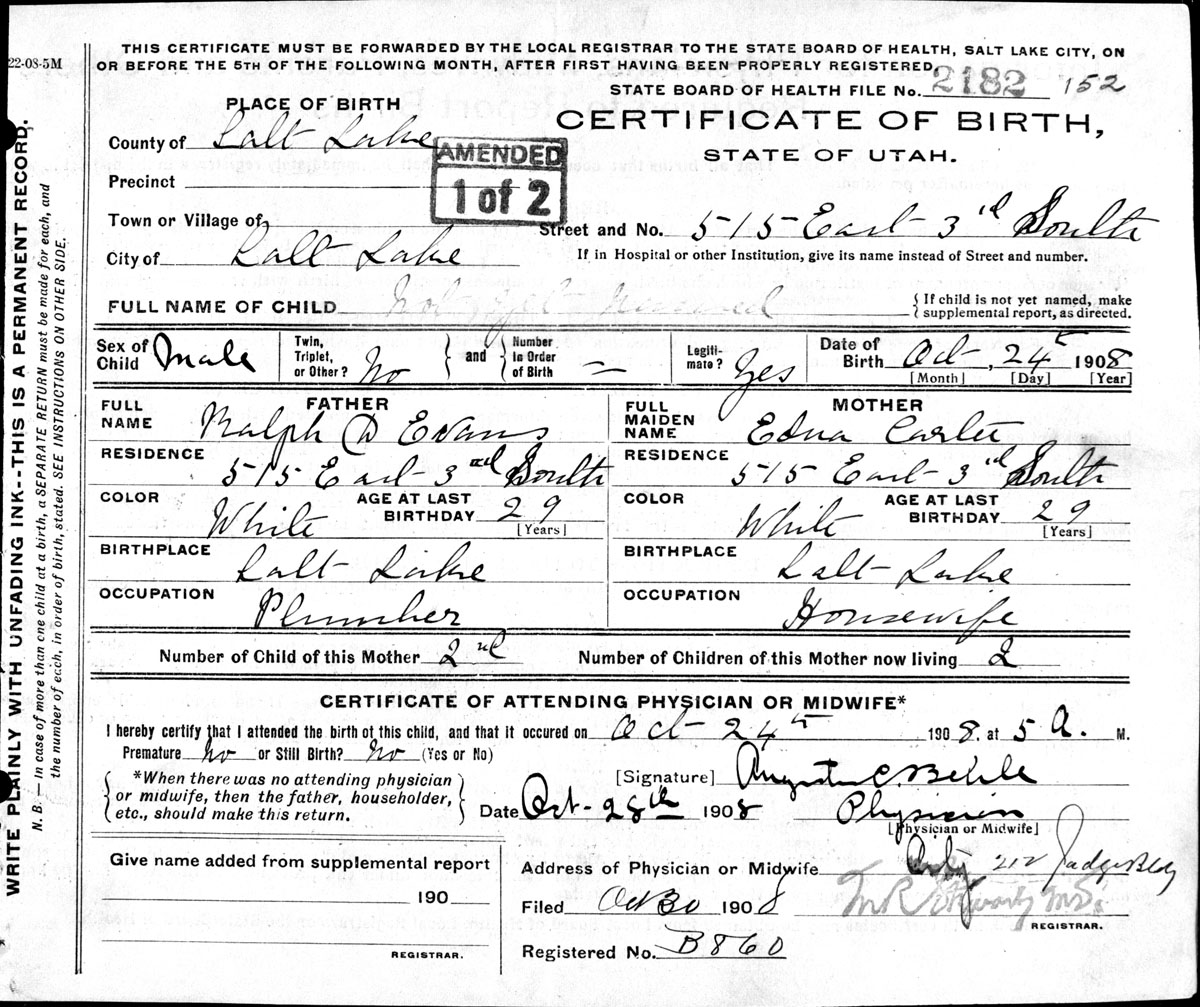 THIS CERTIFICATE MUST BE FORWARDED BY THE LOCAL REGISTRAR TO THE STATE BOARD OF HEALTH, SALT LAKE CITY, ON
22-08-5M
OR BEFORE THE 5TH OF THE FOLLOWING MONTH, AFTER FIRST HAVING BEEN PROPERLY REGISTERED.
STATE BOARD OF HEALTH FILE No. 2182 152
PLACE OF BIRTH
CERTIFICATE OF BIRTH,
County of Salt Lake
STATE OF UTAH.
AMENDED
1 of 2
Precinct
Town or Village of
Street and No. 515 East 3rd South
City of Salt Lake
If in Hospital or other Institution, give its name instead of Street and number.
FULL NAME OF CHILD Not yet named
{ If child is not yet named, make
supplemental report, as directed.
Sex of Child Male
Twin, Triplet, or Other? No } and { Number in Order of Birth —
Legiti-mate? Yes
Date of Birth Oct, 24th 1908
[Month] [Day] [Year]
FATHER
FULL NAME Ralph D Evans
RESIDENCE 515 East 3rd South
COLOR White
AGE AT LAST BIRTHDAY 29
[Years]
BIRTHPLACE Salt Lake
OCCUPATION Plumber
MOTHER
FULL MAIDEN NAME Edna
RESIDENCE 515 East 3rd South
COLOR White
AGE AT LAST BIRTHDAY 29
[Years]
BIRTHPLACE Salt Lake
OCCUPATION Housewife
Number of Child of this Mother 2nd
Number of Children of this Mother now living 2
CERTIFICATE OF ATTENDING PHYSICIAN OR MIDWIFE*
I hereby certify that I attended the birth of this child, and that it occured on Oct 24th 1908. at 5 A. M.
Premature No or Still Birth? No (Yes or No)
{ *When there was no attending physician
or midwife, then the father, householder,
etc., should make this return. }
[Signature] C. Behle
Date Oct-28th 1908
Physician
[Physician or Midwife]
Give name added from supplemental report
190
REGISTRAR.
Address of Physician or Midwife City 212 Judge Bldg
Filed Oct 30 1908
M.D.
REGISTRAR.
Registered No. B860
WRITE PLAINLY WITH UNFADING INK--THIS IS A PERMANENT RECORD.
N. B. — In case of more than one child at a birth, a SEPARATE RETURN must be made for each, and
the number of each, in order of birth, stated. SEE INSTRUCTIONS ON OTHER SIDE.